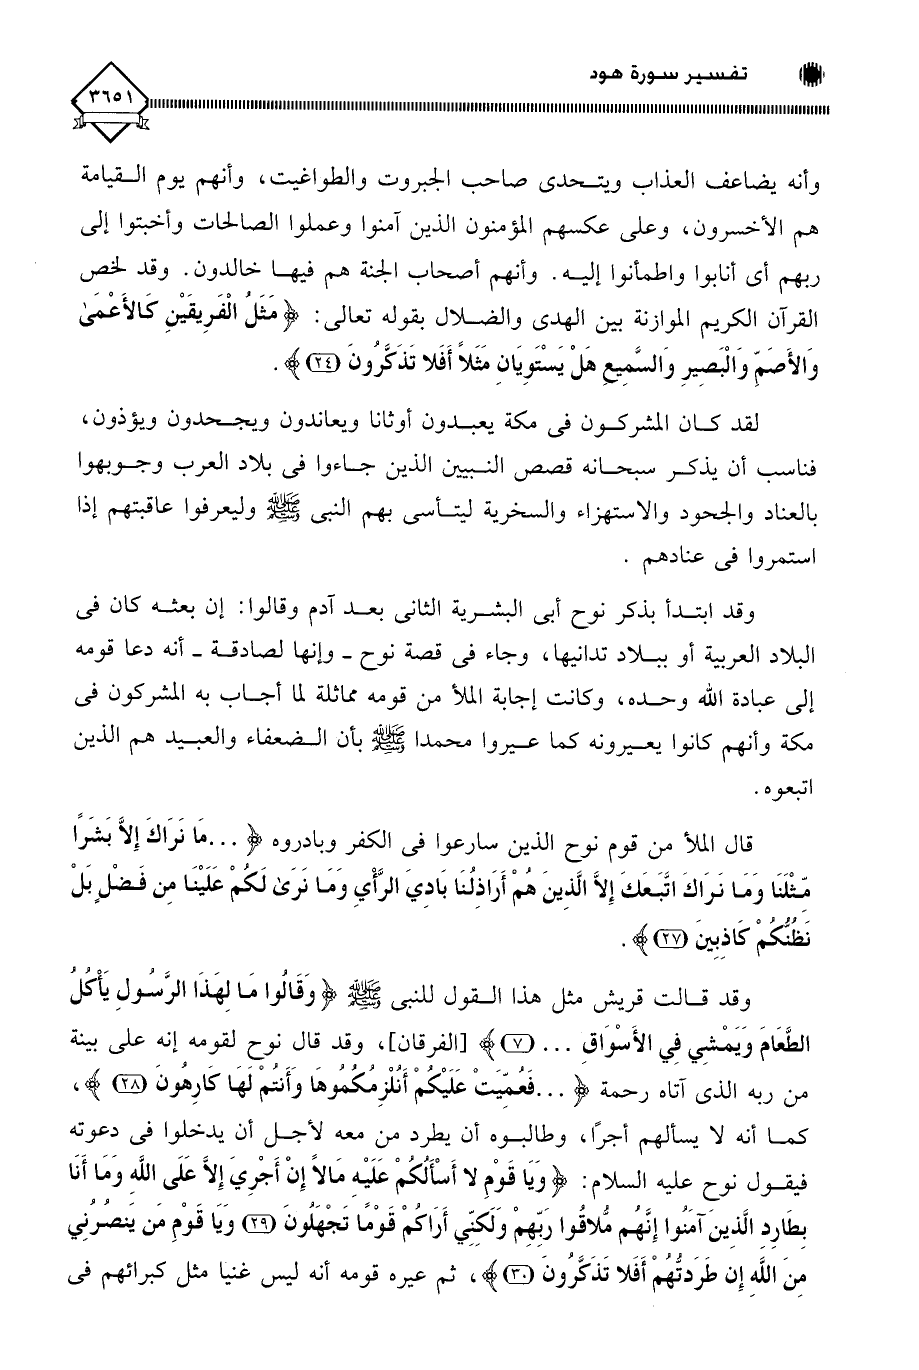 تفسير سورة هود
٣٦٥١
وأنه يضاعف العذاب ويتحدى صاحب الجبروت والطواغيت، وأنهم يوم القيامة
هم الأخسرون، وعلى عكسهم المؤمنون الذين آمنوا وعملوا الصالحات وأخبتوا إلى
ربهم أى أنابوا واطمأنوا إليه. وأنهم أصحاب الجنة هم فيها خالدون. وقد لخص
القرآن الكريم الموازنة بين الهدى والضلال بقوله تعالى: ﴿ مَثَلُ الْفَرِيقَيْنِ كَالأَعْمَىٰ
وَالأَصَمِّ وَالْبَصِيرِ وَالسَّمِيعِ هَلْ يَسْتَوِيَانِ مَثَلاً أَفَلا تَذَكَّرُونَ (٢٤)﴾ .
لقد كان المشركون فى مكة يعبدون أوثانا ويعاندون ويجحدون ويؤذون،
فناسب أن يذكر سبحانه قصص النبيين الذين جاءوا فى بلاد العرب وجوبهوا
بالعناد والجحود والاستهزاء والسخرية ليتأسى بهم النبى ﷺ وليعرفوا عاقبتهم إذا
استمروا فى عنادهم .
وقد ابتدأ بذكر نوح أبى البشرية الثانى بعد آدم وقالوا: إن بعثه كان فى
البلاد العربية أو ببلاد تدانيها، وجاء فى قصة نوح ـ وإنها لصادقة ـ أنه دعا قومه
إلى عبادة الله وحده، وكانت إجابة الملأ من قومه مماثلة لما أجاب به المشركون فى
مكة وأنهم كانوا يعيرونه كما عيروا محمدا ﷺ بأن الضعفاء والعبيد هم الذين
اتبعوه.
قال الملأ من قوم نوح الذين سارعوا فى الكفر وبادروه ﴿ ...مَا نَرَاكَ إِلاَّ بَشَرًا
مِّثْلَنَا وَمَا نَرَاكَ اتَّبَعَكَ إِلاَّ الَّذِينَ هُمْ أَرَاذِلُنَا بَادِيَ الرَّأْيِ وَمَا نَرَىٰ لَكُمْ عَلَيْنَا مِن فَضْلٍ بَلْ
نَظُنُّكُمْ كَاذِبِينَ (٢٧)﴾ .
وقد قالت قريش مثل هذا القول للنبى ﷺ ﴿ وَقَالُوا مَا لِهَذَا الرَّسُولِ يَأْكُلُ
الطَّعَامَ وَيَمْشِي فِي الأَسْوَاقِ ... (٧)﴾ [الفرقان]، وقد قال نوح لقومه إنه على بينة
من ربه الذى آتاه رحمة ﴿ ...فَعُمِّيَتْ عَلَيْكُمْ أَنُلْزِمُكُمُوهَا وَأَنتُمْ لَهَا كَارِهُونَ (٢٨) ﴾،
كما أنه لا يسألهم أجرًا، وطالبوه أن يطرد من معه لأجل أن يدخلوا فى دعوته
فيقول نوح عليه السلام: ﴿ وَيَا قَوْمِ لا أَسْأَلُكُمْ عَلَيْهِ مَالاً إِنْ أَجْرِيَ إِلاَّ عَلَى اللَّهِ وَمَا أَنَا
بِطَارِدِ الَّذِينَ آمَنُوا إِنَّهُم مُّلاقُوا رَبِّهِمْ وَلَكِنِّي أَرَاكُمْ قَوْمًا تَجْهَلُونَ (٢٩) وَيَا قَوْمِ مَن يَنصُرُنِي
مِنَ اللَّهِ إِن طَرَدتُّهُمْ أَفَلا تَذَكَّرُونَ (٣٠)﴾، ثم عيره قومه أنه ليس غنيا مثل كبرائهم فى